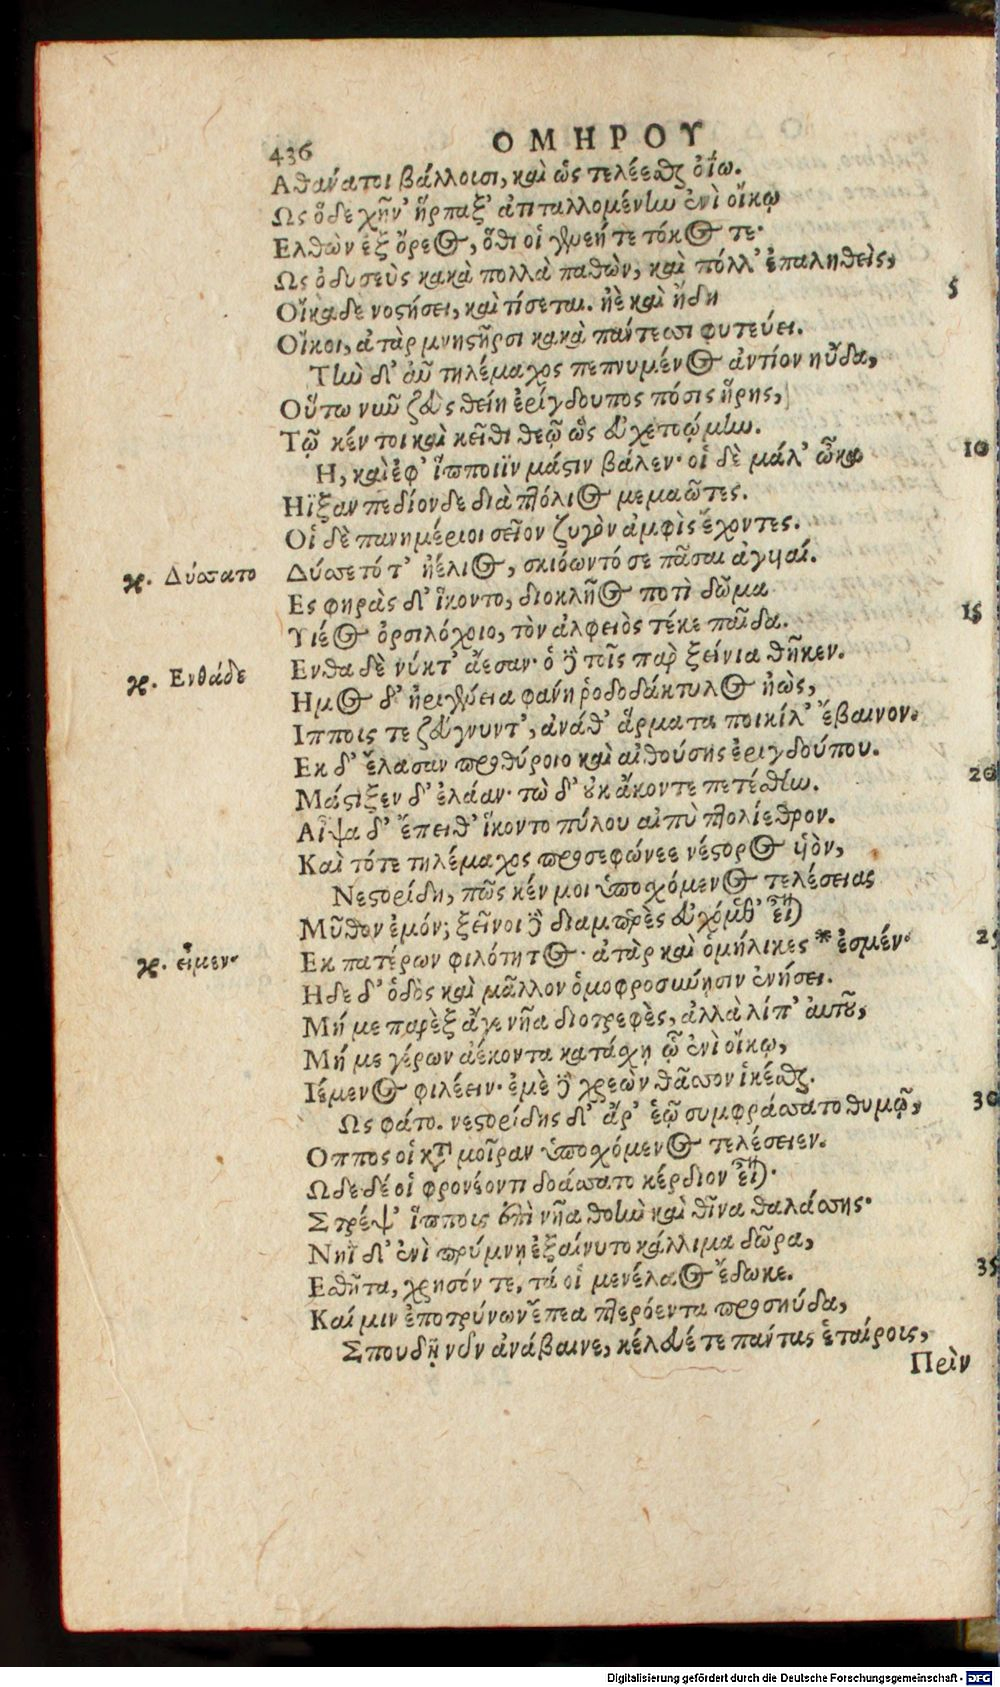 436 ΟΜΗΡΟΥ
Αθανατοι βάλλουσι, καὶ ὡς τελέεσθαι ὀΐω.
Ως ὅδε χῆν' ἥρπαξ' ἀτιταλλομένην ἐνὶ οἴκῳ
Ελθὼν ἐξ ὄρεος, ὅθι οἱ γενεή τε τόκος τε·
Ως ὀδυσεὺς κακὰ πολλὰ παθὼν, καὶ πόλλ' ἐπαληθεὶς, 5
Οἴκαδε νοστήσει, καὶ τίσεται. ἠὲ καὶ ἤδη
Οἴκοι, ἀτὰρ μνηστῆρσι κακὰ πάντεσσι φυτεύει.
Τὴν δ' αὖ τηλέμαχος πεπνυμένος ἀντίον ηὔδα,
Οὕτω νῦν ζεὺς θείη ἐρίγδουπος πόσις ἥρης,
Τῷ κέν τοι καὶ κεῖθι θεῷ ὣς εὐχετοῴμην.
Η, καὶ ἐφ' ἵπποιϊν μάστιν βάλεν· οἱ δὲ μάλ' ὦκα 10
Ηϊξαν πεδίονδε διὰ πτόλιος μεμαῶτες.
Οἱ δὲ πανημέριοι σεῖον ζυγὸν ἀμφὶς ἔχοντες.
γρ. Δύσατο Δύσετό τ' ἠέλιος, σκιόωντό σε πᾶσαι ἀγυιαί.
Ες φηρὰς δ' ἵκοντο, διοκλῆος ποτὶ δῶμα
Υιέος ὀρσιλόχοιο, τὸν ἀλφειὸς τέκε παῖδα. 15
γρ. Ενθάδε Ενθα δὲ νύκτ' ἄεσαν· ὁ δὲ τοῖς παρ ξείνια θῆκεν.
Ημος δ' ἠριγένεια φανη ῥοδοδάκτυλος ἠὼς,
Ιπποις τε ζεύγνυντ', ἀνάθ' ἅρματα ποικίλ' ἔβαινον.
Εκ δ' ἔλασαν προθύροιο καὶ αἰθούσης ἐριγδούπου.
Μάστιξεν δ' ἐλάαν· τὼ δ' οὐκ ἄκοντε πετέσθην. 20
Αἶψα δ' ἔπειθ' ἵκοντο πύλου αἰπὺ πτολίεθρον.
Καὶ τότε τηλέμαχος προσεφώνεε νέστορος υἱὸν,
Νεστορίδη, πῶς κέν μοι ὑποσχόμενος τελέσειας
Μῦθον ἐμόν; ξεῖνοι δὲ διαμπερὲς εὐχόμεθ' εἶναι
γρ. εἶμεν· Εκ πατέρων φιλότητος· ἀτὰρ καὶ ὁμήλικες * ἐσμέν· 25
Ηδε δ' ὁδὸς καὶ μᾶλλον ὁμοφροσύνησιν ἐνήσει.
Μή με παρὲξ ἄγε νῆα διοτρεφὲς, ἀλλὰ λίπ' αὐτοῦ,
Μή με γέρων ἀέκοντα κατάσχῃ ᾧ ἐνὶ οἴκῳ,
Ιέμενος φιλέειν· ἐμὲ δὲ χρεὼν θᾶσσον ἱκέσθαι.
Ως φάτο. νεστορίδης δ' ἄρ' ἑῷ συμφράσσατο θυμῷ, 30
Οππος οἱ κατὰ μοῖραν ὑποσχόμενος τελέσειεν.
Ωδε δέ οἱ φρονέοντι δοάσσατο κέρδιον εἶναι·
Στρέψ' ἵππους ἐπὶ νῆα θοὴν καὶ θῖνα θαλάσσης·
Νηῒ δ' ἐνὶ πρύμνῃ ἐξαίνυτο κάλλιμα δῶρα,
Εσθῆτα, χρυσόν τε, τά οἱ μενέλαος ἔδωκε. 35
Καί μιν ἐποτρύνων ἔπεα πτερόεντα προσηύδα,
Σπουδῇ νῦν ἀνάβαινε, κέλευέ τε πάντας ἑταίρους,
Πρὶν
Digitalisierung gefördert durch die Deutsche Forschungsgemeinschaft - DFG